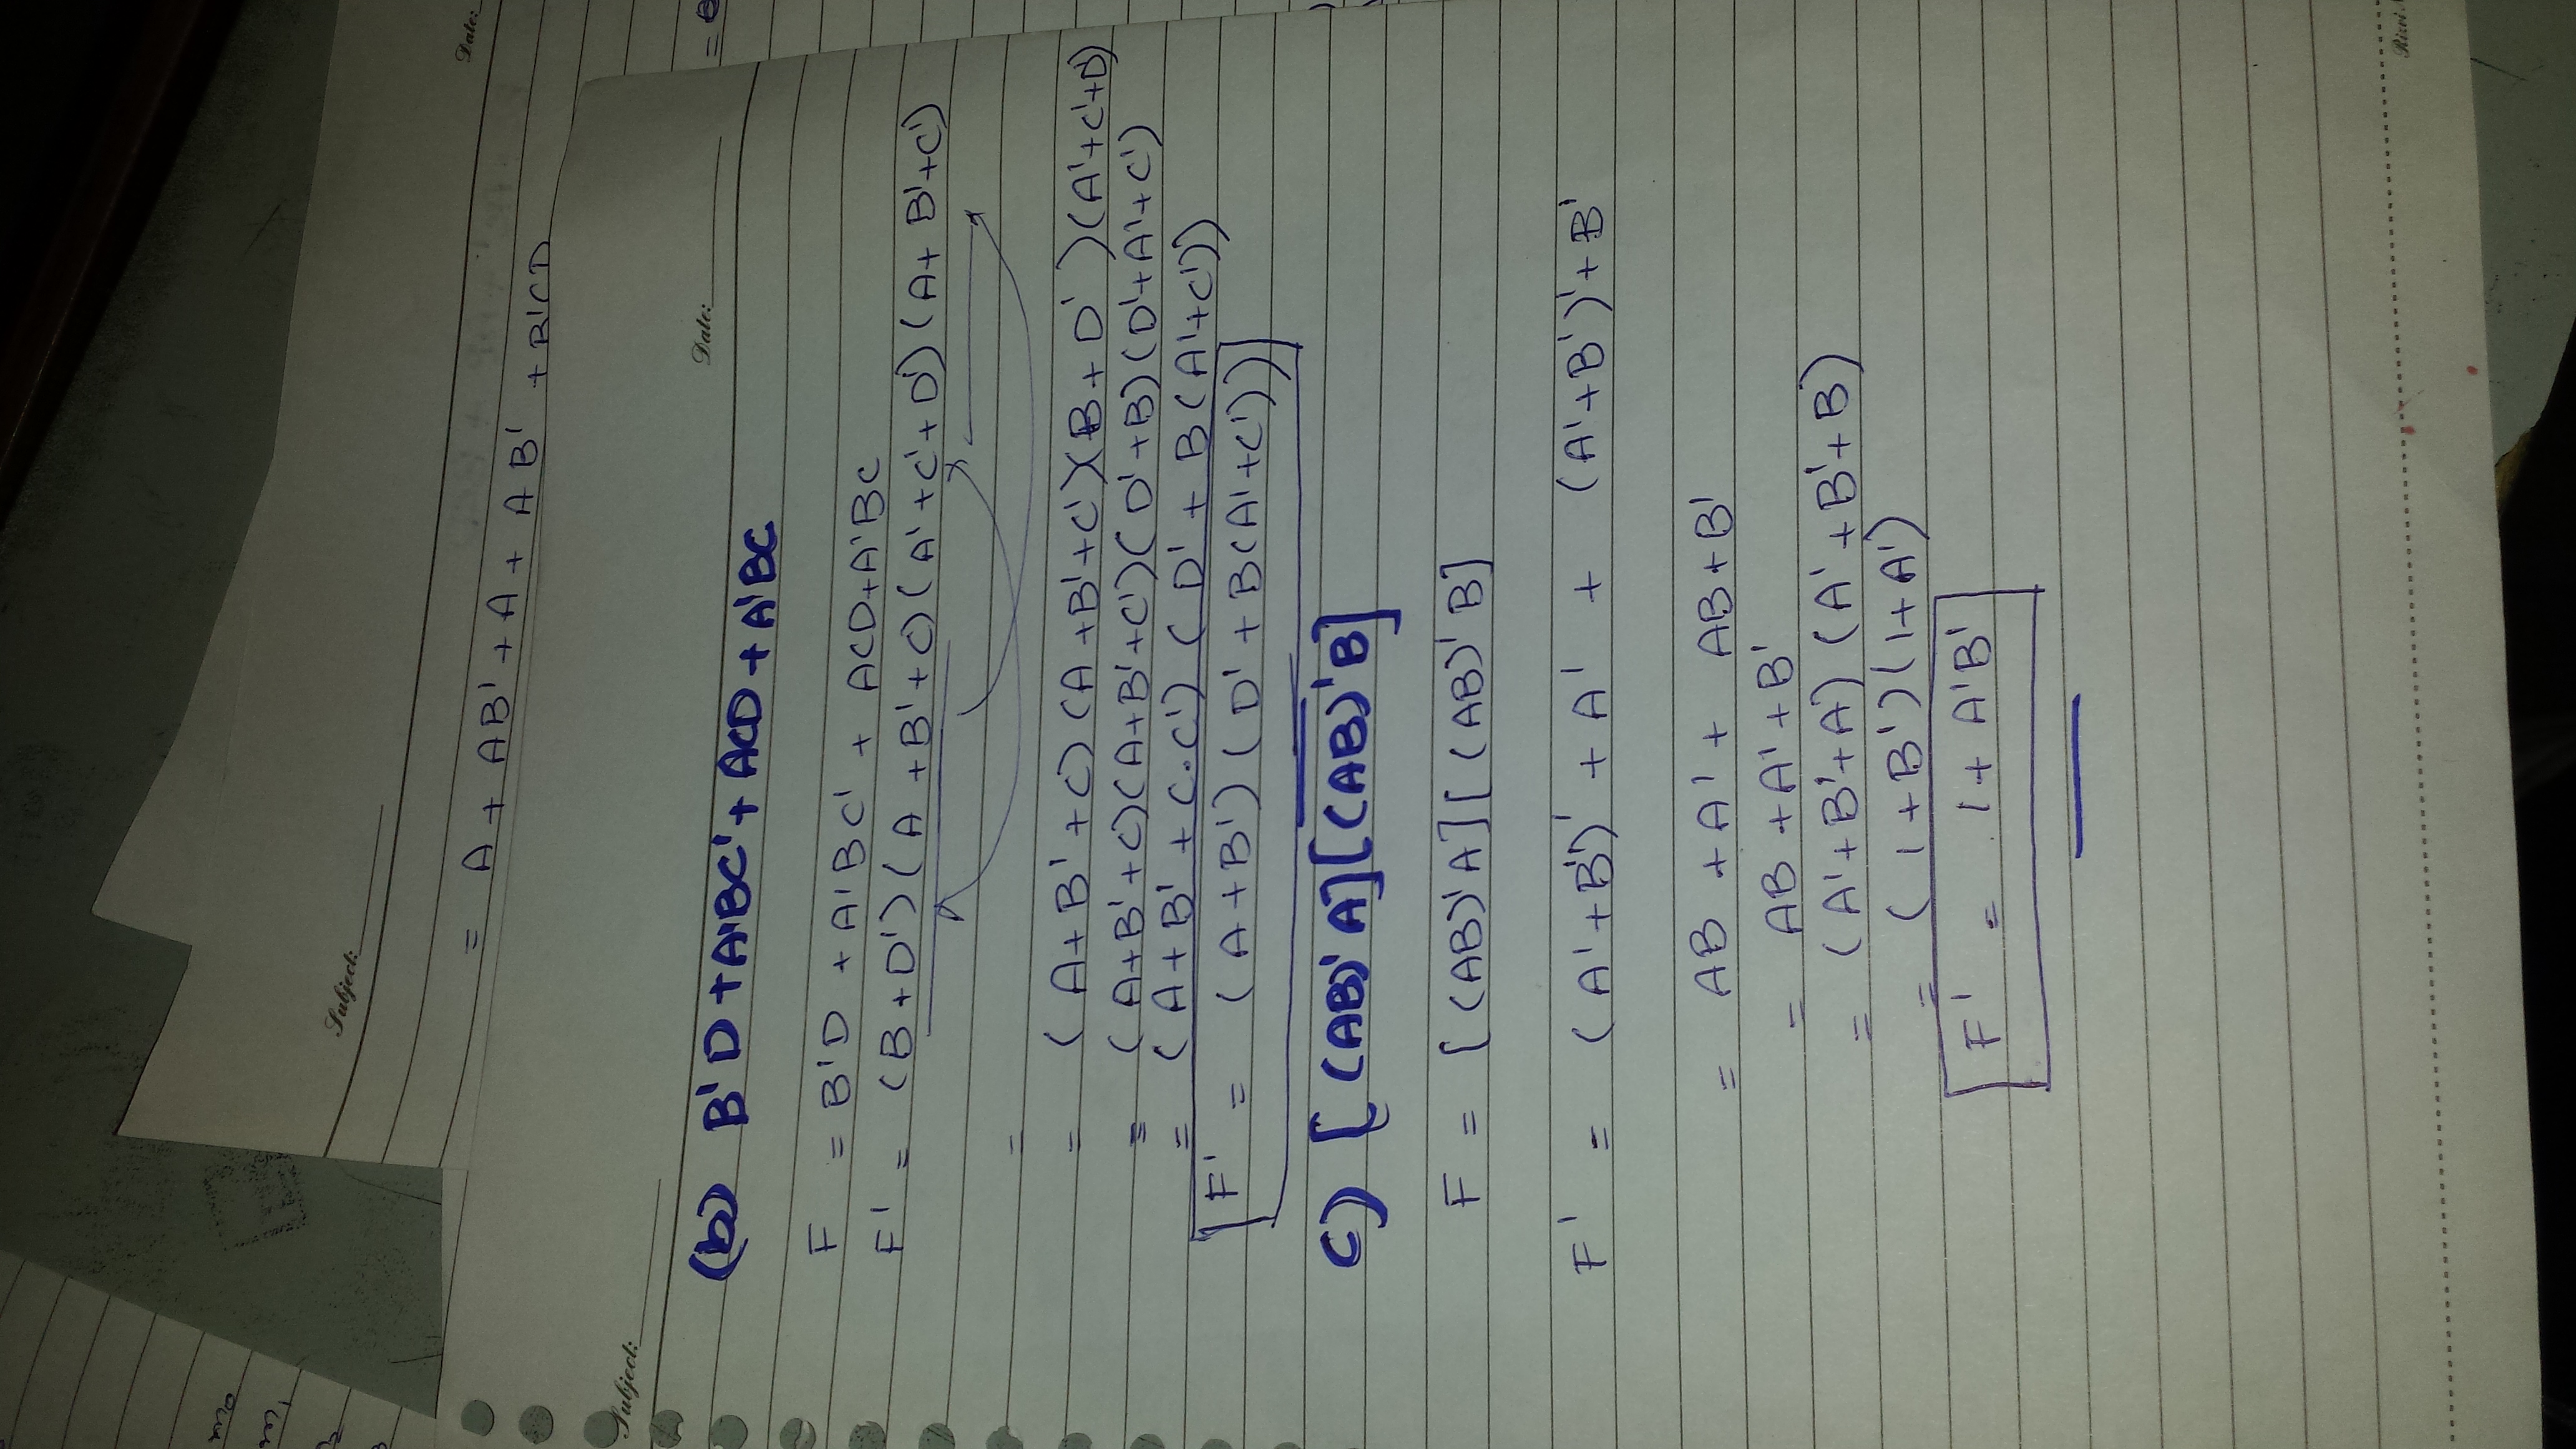 m0
m1
Subject:
Date:
= A + AB' + A + AB' + B'CD
Subject:
Date:
(b) B'D + A'BC' + ACD + A'BC
F = B'D + A'BC' + ACD + A'BC
F' = (B + D')(A + B' + C)(A' + C' + D')(A + B' + C')
=
= (A + B' + C)(A + B' + C')(B + D')(A' + C' + D')
= (A + B' + C)(A + B' + C')(D' + B)(D' + A' + C')
= (A + B' + C.C')(D' + B(A' + C'))
F' = (A + B')(D' + B(A' + C'))
C) [(AB)'A][(AB)'B]
F = [(AB)'A][(AB)'B]
F' = (A' + B')' + A' + (A' + B')' + B'
= AB + A' + AB + B'
= AB + A' + B'
= (A' + B' + A)(A' + B' + B)
= (1 + B')(1 + A')
F' = 1 + A'B'